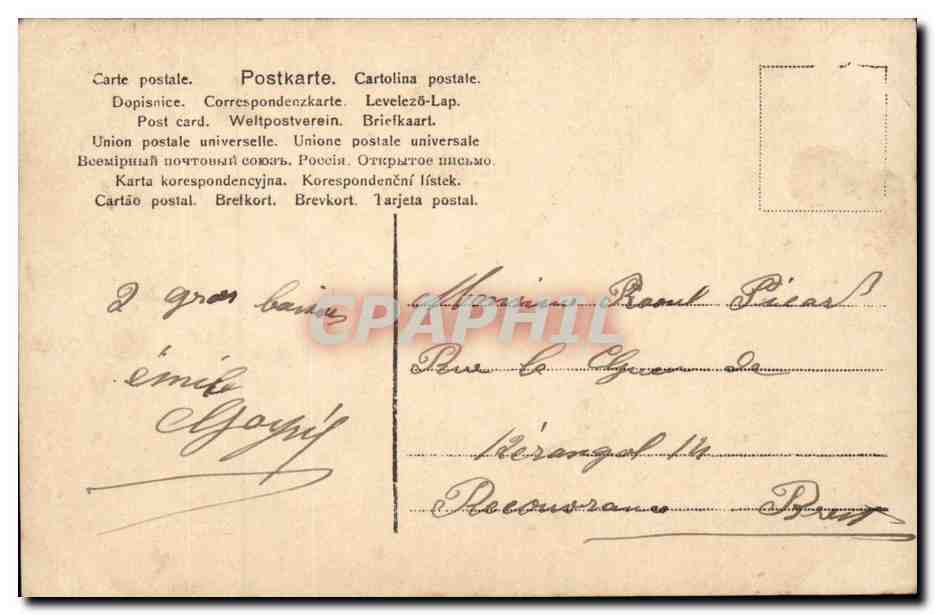 Carte postale. Postkarte. Cartolina postale.
Dopisnice. Correspondenzkarte. Levelező-Lap.
Post card. Weltpostverein. Briefkaart.
Union postale universelle. Unione postale universale
Всемірный почтовый союзъ. Россія. Открытое письмо.
Karta korespondencyjna. Korespondenční lístek.
Cartão postal. Brefkort. Brevkort. Tarjeta postal.
2 gros
émile
Monsieur Raoul Picard
Rue le Guen de
Kérangal 14
Recouvrance Brest
CPAPHIL